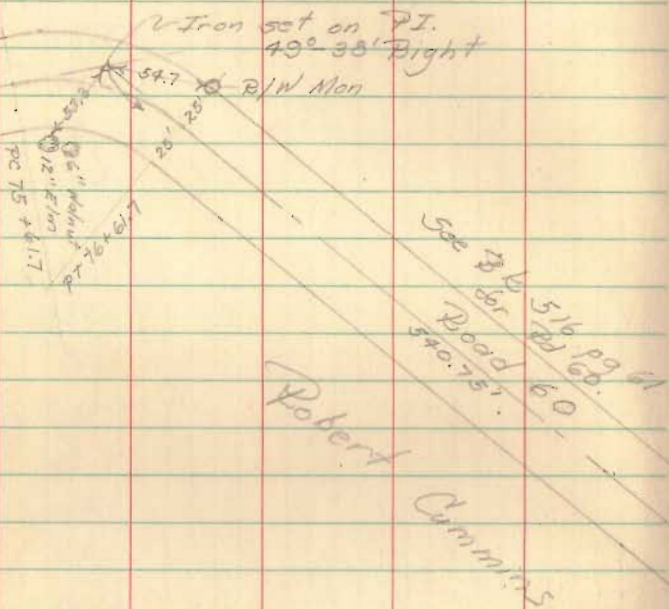 Iron set on P.I.
49°-38' Right
54.7
R/W Mon
25'
25'
55.3
6" Walnut
12" Elm
PC 75 + 61.7
PT 76 + 61.7
See Bk 516 pg 61
for Rd 60.
Road 60
540.75'.
Robert Cummins